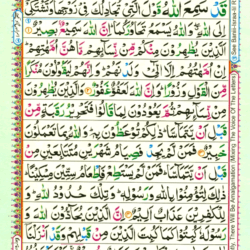 قَدْ سَمِعَ اللّٰهُ قَوْلَ الَّتِيْ تُجَادِلُكَ فِيْ زَوْجِهَا وَتَشْتَكِيْۤ
اِلَى اللّٰهِ وَاللّٰهُ يَسْمَعُ تَحَاوُرَكُمَا اِنَّ اللّٰهَ سَمِيْعٌۢ بَصِيْرٌ
اَلَّذِيْنَ يُظٰهِرُوْنَ مِنْكُمْ مِّنْ نِّسَآئِهِمْ مَّا هُنَّ اُمَّهٰتِهِمْ
اِنْ اُمَّهٰتُهُمْ اِلَّا الّٰٓـِٔيْ وَلَدْنَهُمْ وَاِنَّهُمْ لَيَقُوْلُوْنَ مُنْكَرًا
مِّنَ الْقَوْلِ وَزُوْرًا وَاِنَّ اللّٰهَ لَعَفُوٌّ غَفُوْرٌ وَالَّذِيْنَ يُظٰهِرُوْنَ
مِنْ نِّسَآئِهِمْ ثُمَّ يَعُوْدُوْنَ لِمَا قَالُوْا فَتَحْرِيْرُ رَقَبَةٍ مِّنْ
قَبْلِ اَنْ يَّتَمَآسَّا ذٰلِكُمْ تُوْعَظُوْنَ بِهٖ وَاللّٰهُ بِمَا تَعْمَلُوْنَ
خَبِيْرٌ فَمَنْ لَّمْ يَجِدْ فَصِيَامُ شَهْرَيْنِ مُتَتَابِعَيْنِ مِنْ
قَبْلِ اَنْ يَّتَمَآسَّا فَمَنْ لَّمْ يَسْتَطِعْ فَاِطْعَامُ سِتِّيْنَ مِسْكِيْنًا
ذٰلِكَ لِتُؤْمِنُوْا بِاللّٰهِ وَرَسُوْلِهٖ وَتِلْكَ حُدُوْدُ اللّٰهِ وَ
لِلْكٰفِرِيْنَ عَذَابٌ اَلِيْمٌ اِنَّ الَّذِيْنَ يُحَآدُّوْنَ اللّٰهَ
وَرَسُوْلَهٗ كُبِتُوْا كَمَا كُبِتَ الَّذِيْنَ مِنْ قَبْلِهِمْ وَقَدْ اَنْزَلْنَاۤ
There Will Be Amalgamation (Mixing The Voice Of The Letter)